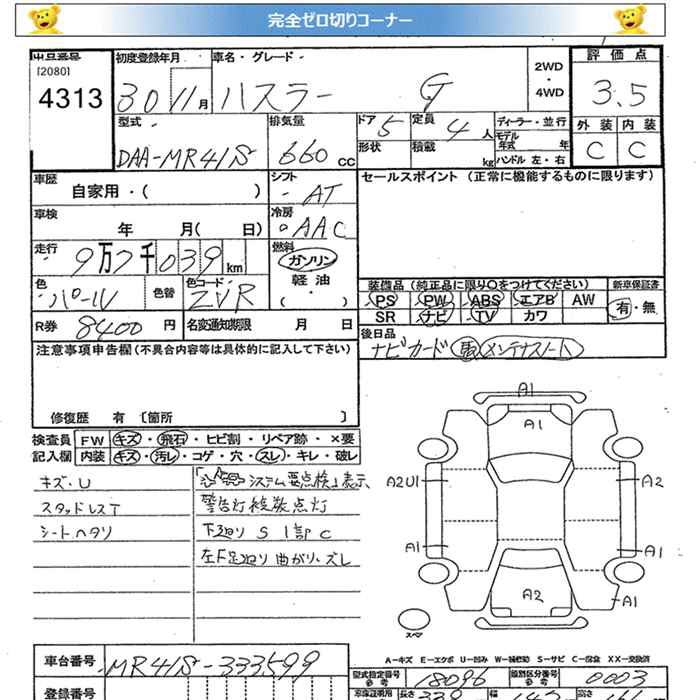 完全ゼロ切りコーナー
出品番号 初度登録年月 車名・グレード 2WD・4WD 評価点
[2080]
4313 30 11月 ハスラー G 3.5
型式 排気量 ドア 5 定員 4人 ディーラー・並行 外装 内装
DAA-MR41S 660cc 形状 積載 kg モデル年式 年 C C
ハンドル 左・右
車歴 自家用・( ) シフト AT セールスポイント (正常に機能するものに限ります)
車検 年 月( 日) 冷房 AAC
走行 9万7千039km 燃料 ガソリン
軽油
( ・ )
色 パール 色替 色コード ZVR 装備品 (純正品に限り○をつけてください) 新車保証書
PS PW ABS エアB AW 有・無
SR ナビ TV カワ
R券 8400円 名変通知期限 月 日 後日品
ナビカード 取 メンテナスノート
注意事項申告欄(不具合内容等は具体的に記入して下さい)
修復歴 有 [箇所 ]
検査員 FW キズ・飛石・ヒビ割・リペア跡・×要
記入欄 内装 キズ・汚レ・コゲ・穴・スレ・キレ・破レ
キズ・U システム要点検」表示
スタッドレスT 警告灯複数点灯
シートヘタリ 下廻り S 1部 C
左F足廻り曲がり、ズレ
A1
A1
A2U1 A2
A1 A1
A2 A1
スペア
A-キズ E-エクボ U-凹み W-補修跡 S-サビ C-腐食 XX-交換済
車台番号 MR41S-333599 型式指定番号 18096 類別区分番号 0003
参考 参考
登録番号 車庫証明用 長さ 339 幅 147 高さ